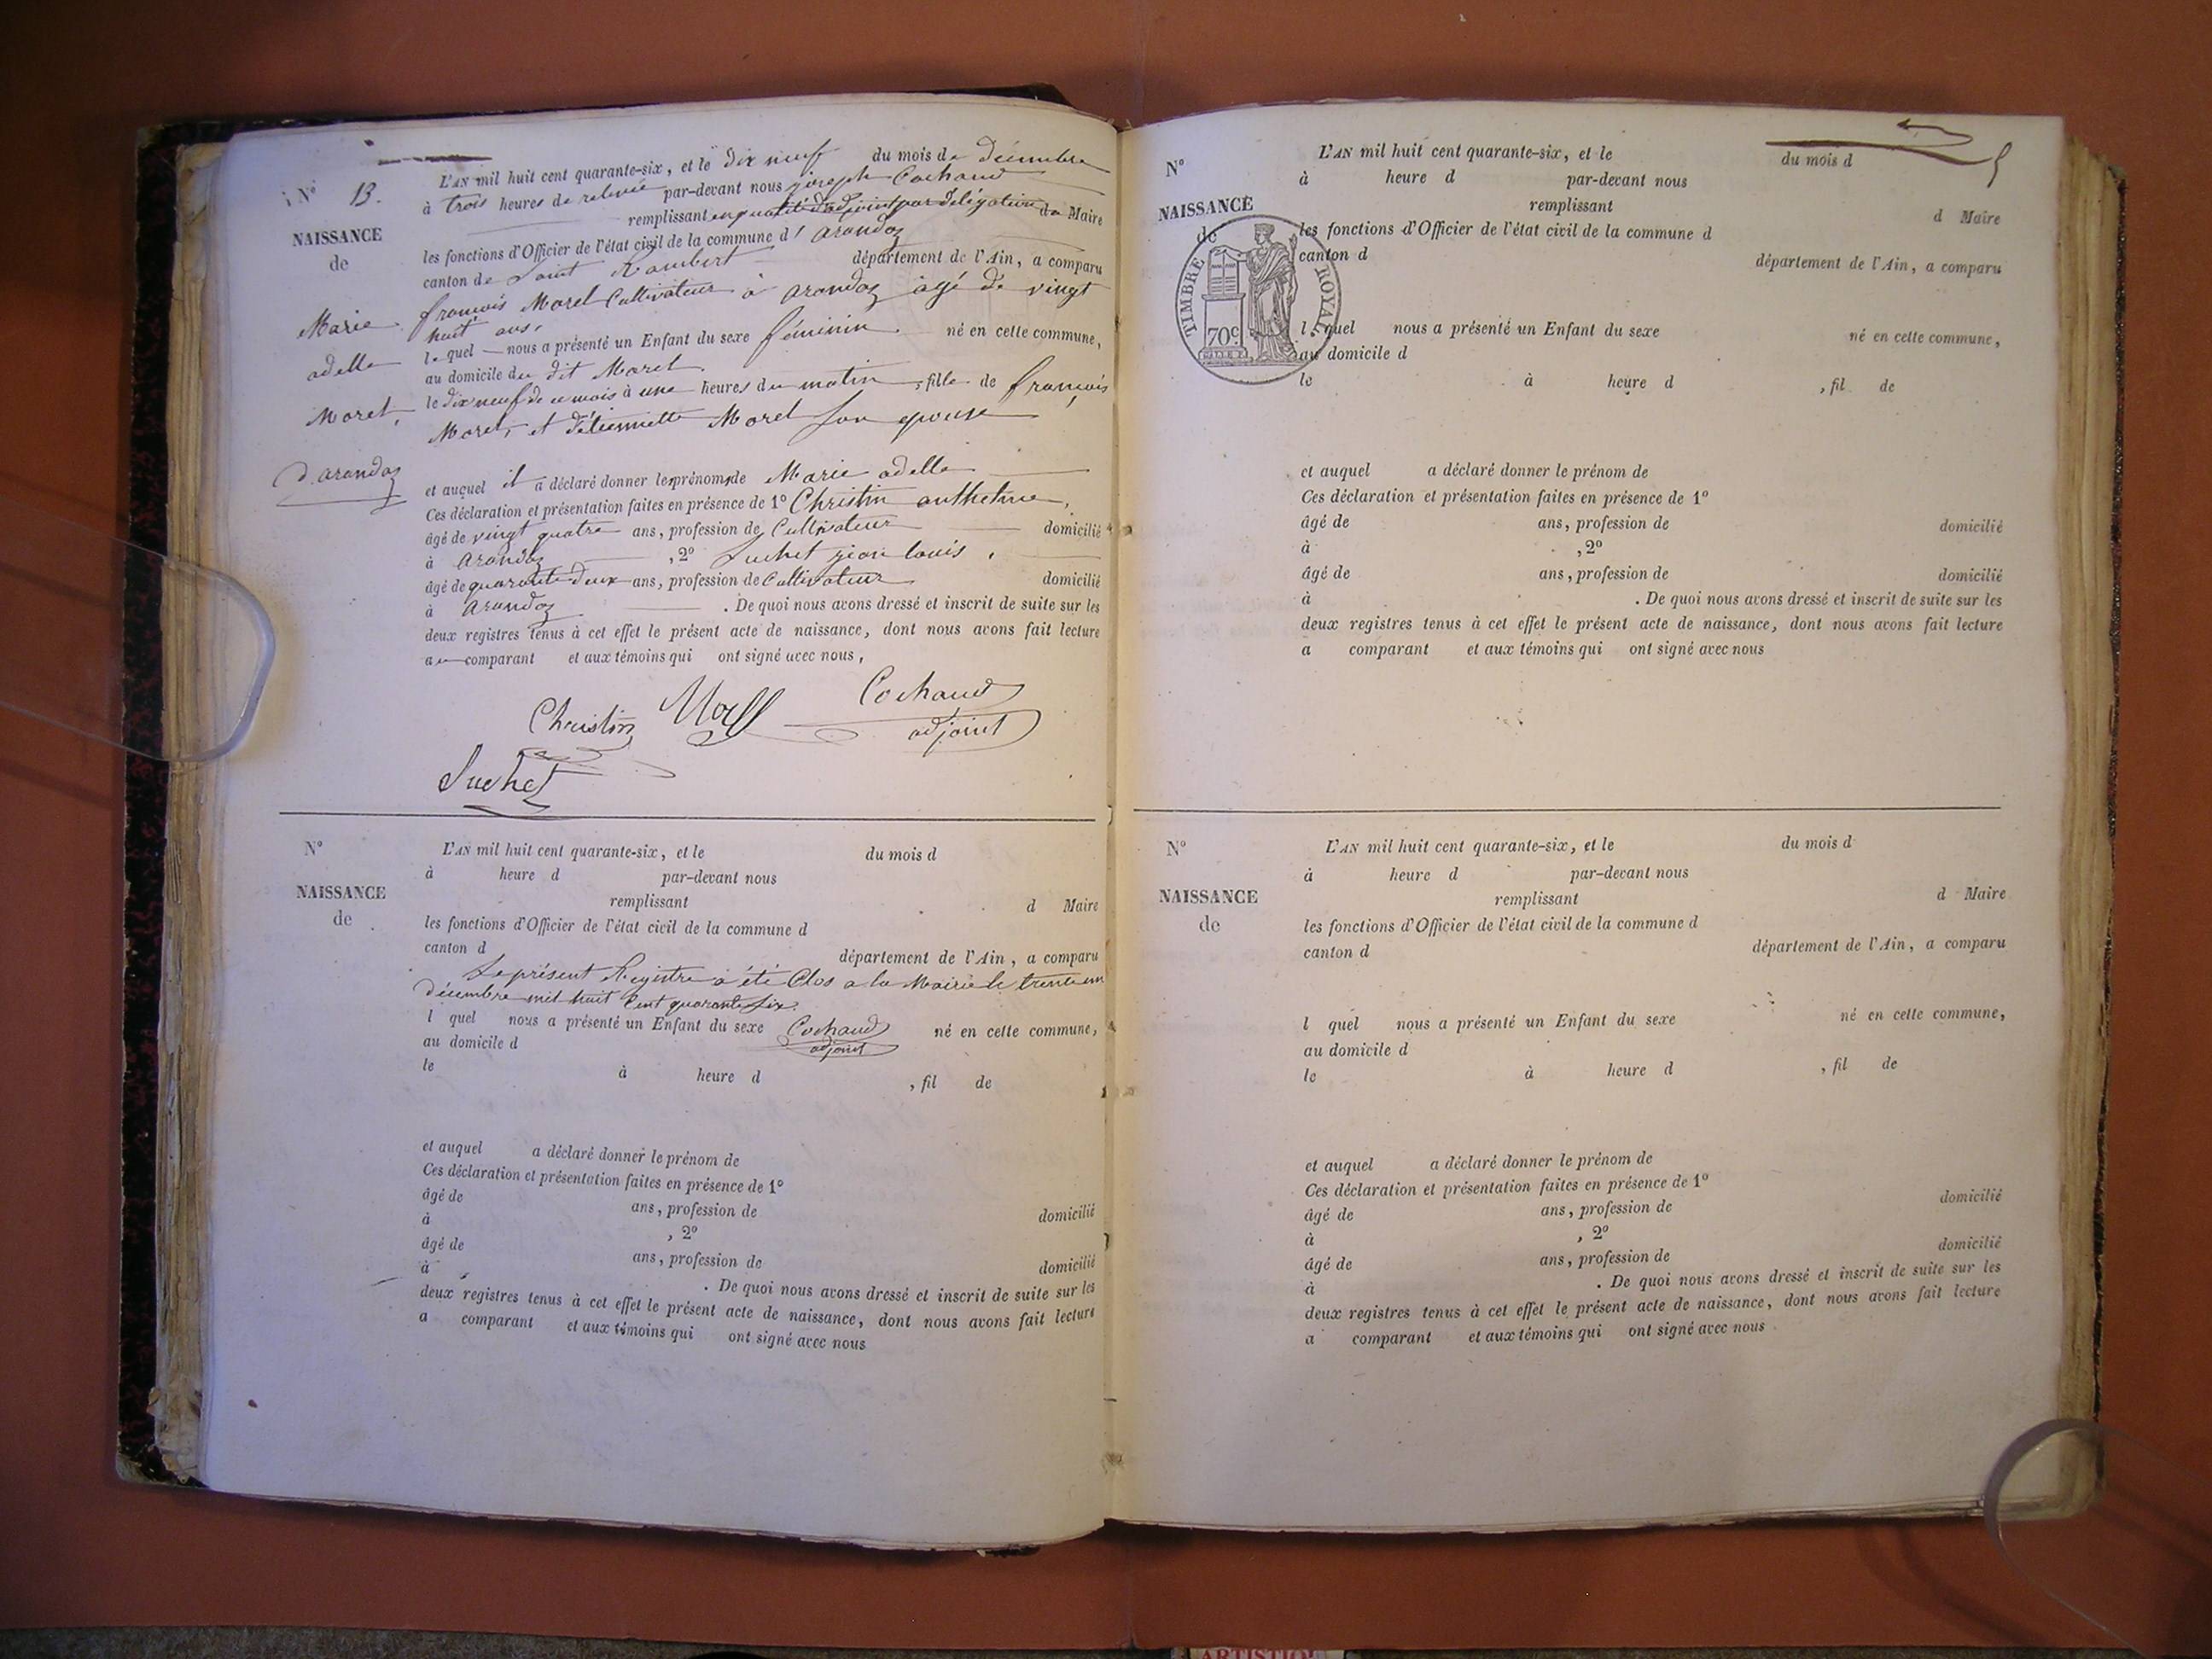 N° 13.
NAISSANCE
de
Marie
adelle
Morel,
d'arandaz
L'AN mil huit cent quarante-six, et le dix neuf du mois de décembre
à trois heures de relevée par-devant nous joseph Cochaud
remplissant en qualité d'adjoint par délégation du Maire
les fonctions d'Officier de l'état civil de la commune d'arandaz
canton de Saint Rambert département de l'Ain, a comparu
françois Morel Cultivateur à arandaz agé de vingt
huit ans,
lequel nous a présenté un Enfant du sexe féminin né en cette commune,
au domicile du dit Morel
le dix neuf de ce mois à une heures du matin, fille de françois
Morel, et d'étiennette Morel son epouse
et auquel il a déclaré donner les prénoms de Marie adelle
Ces déclaration et présentation faites en présence de 1° Christin anthelme,
âgé de vingt quatre ans, profession de Cultivateur domicilié
à arandaz, 2° Suchet jean louis,
âgé de quarante deux ans, profession de Cultivateur domicilié
à arandaz. De quoi nous avons dressé et inscrit de suite sur les
deux registres tenus à cet effet le présent acte de naissance, dont nous avons fait lecture
au comparant et aux témoins qui ont signé avec nous,
Christin Morel Cochaud
adjoint
Suchet
N°
NAISSANCE
de
L'AN mil huit cent quarante-six, et le du mois d
à heure d par-devant nous
remplissant d Maire
les fonctions d'Officier de l'état civil de la commune d
canton d département de l'Ain, a comparu
Le présent Registre a été Clos a la Mairie le trente un
décembre mil huit Cent quarante Six.
l quel nous a présenté un Enfant du sexe Cochaud né en cette commune,
adjoint
au domicile d
le à heure d , fil de
et auquel a déclaré donner le prénom de
Ces déclaration et présentation faites en présence de 1°
âgé de ans, profession de domicilié
à , 2°
âgé de ans, profession de domicilié
à . De quoi nous avons dressé et inscrit de suite sur les
deux registres tenus à cet effet le présent acte de naissance, dont nous avons fait lecture
a comparant et aux témoins qui ont signé avec nous
N°
NAISSANCE
de
TIMBRE ROYAL
70c
L'AN mil huit cent quarante-six, et le du mois d
à heure d par-devant nous
remplissant d Maire
les fonctions d'Officier de l'état civil de la commune d
canton d département de l'Ain, a comparu
l quel nous a présenté un Enfant du sexe né en cette commune,
au domicile d
le à heure d , fil de
et auquel a déclaré donner le prénom de
Ces déclaration et présentation faites en présence de 1°
âgé de ans, profession de domicilié
à , 2°
âgé de ans, profession de domicilié
à . De quoi nous avons dressé et inscrit de suite sur les
deux registres tenus à cet effet le présent acte de naissance, dont nous avons fait lecture
a comparant et aux témoins qui ont signé avec nous
N°
NAISSANCE
de
L'AN mil huit cent quarante-six, et le du mois d
à heure d par-devant nous
remplissant d Maire
les fonctions d'Officier de l'état civil de la commune d
canton d département de l'Ain, a comparu
l quel nous a présenté un Enfant du sexe né en cette commune,
au domicile d
le à heure d , fil de
et auquel a déclaré donner le prénom de
Ces déclaration et présentation faites en présence de 1°
âgé de ans, profession de domicilié
à , 2°
âgé de ans, profession de domicilié
à . De quoi nous avons dressé et inscrit de suite sur les
deux registres tenus à cet effet le présent acte de naissance, dont nous avons fait lecture
a comparant et aux témoins qui ont signé avec nous